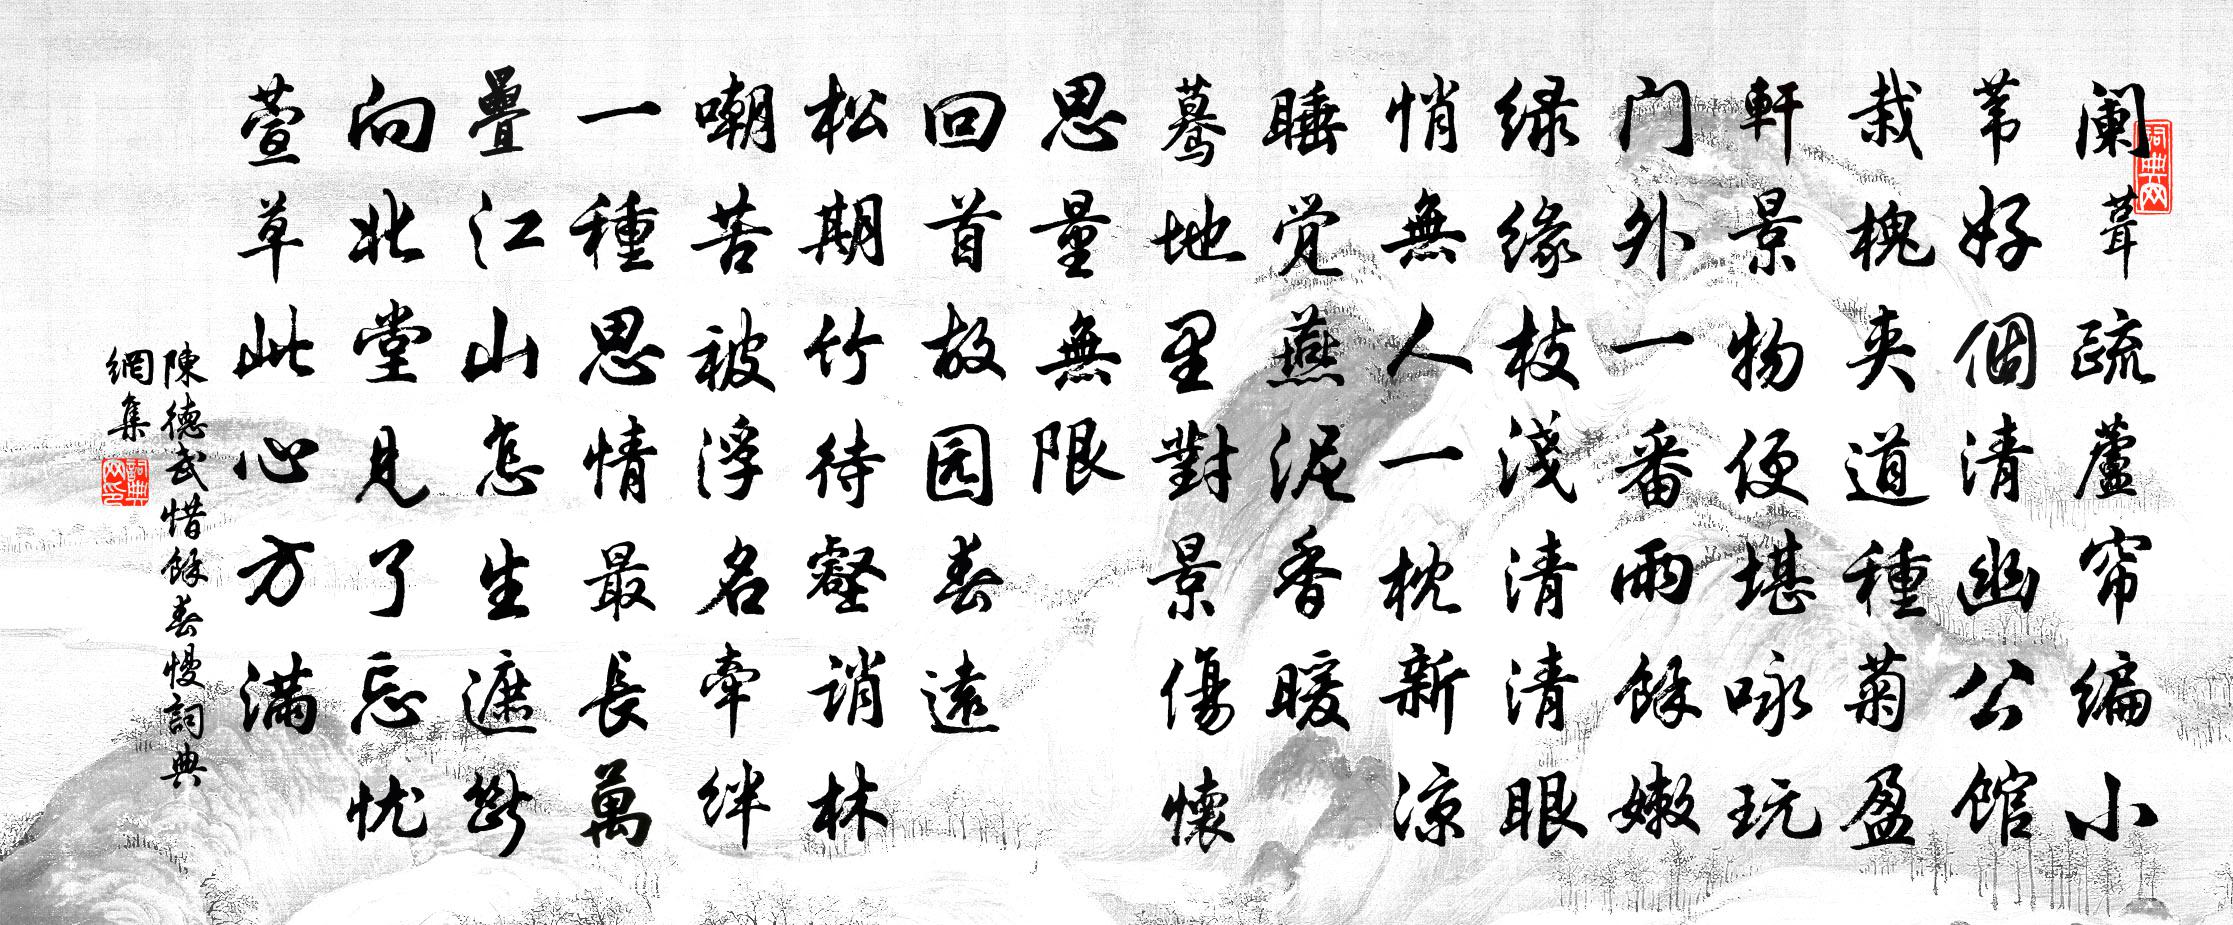 阑葺疏蘆帘編小
苇好個清幽公馆
栽槐夹道種菊盈
軒景物便堪咏玩
门外一番雨餘嫩
绿缘枝淺清清眼
悄無人一枕新涼
睡觉燕泥香暖
蓦地里對景傷懷
思量無限
回首故园春遠
松期竹待壑誚林
嘲苦被浮名牽絆
一種思情最長萬
疊江山怎生遮斷
向北堂見了忘忧
萱草此心方满
陳德武惜餘春慢詞典
網集
词典网
詞典网印